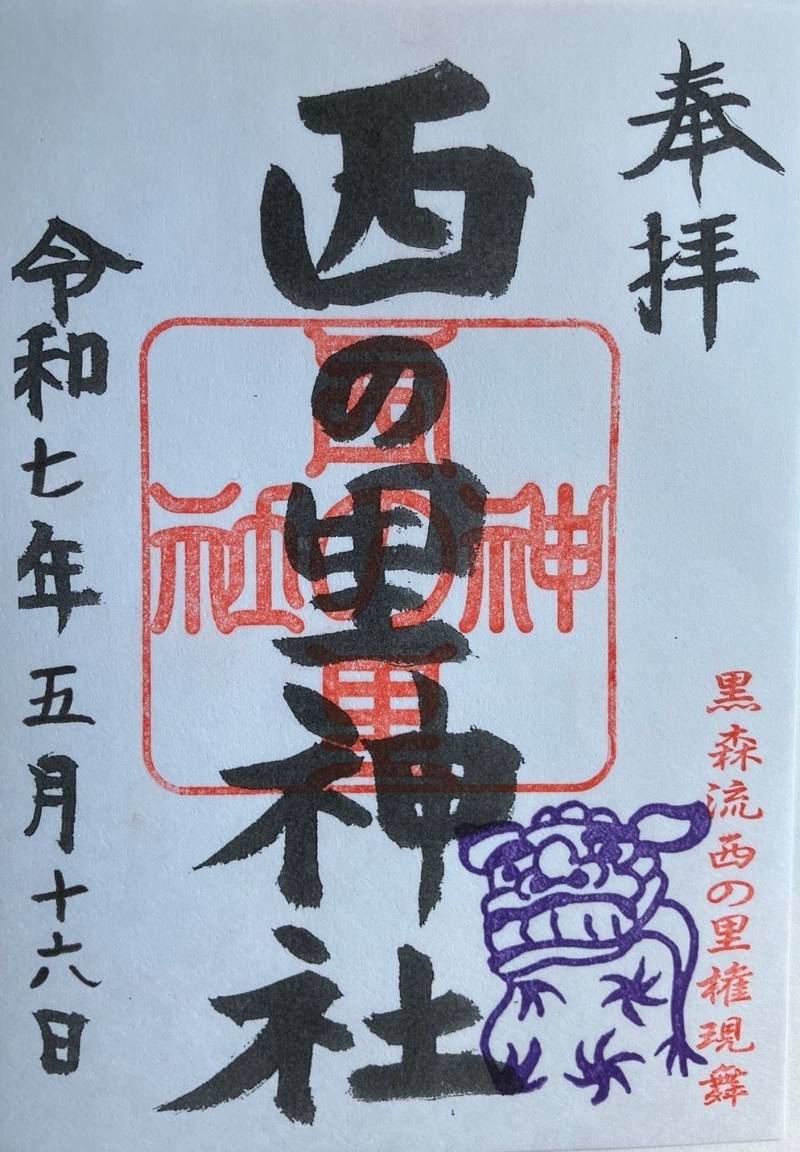 奉拝
西の里神社
西の里神社
黒森流西の里権現舞
令和七年五月十六日